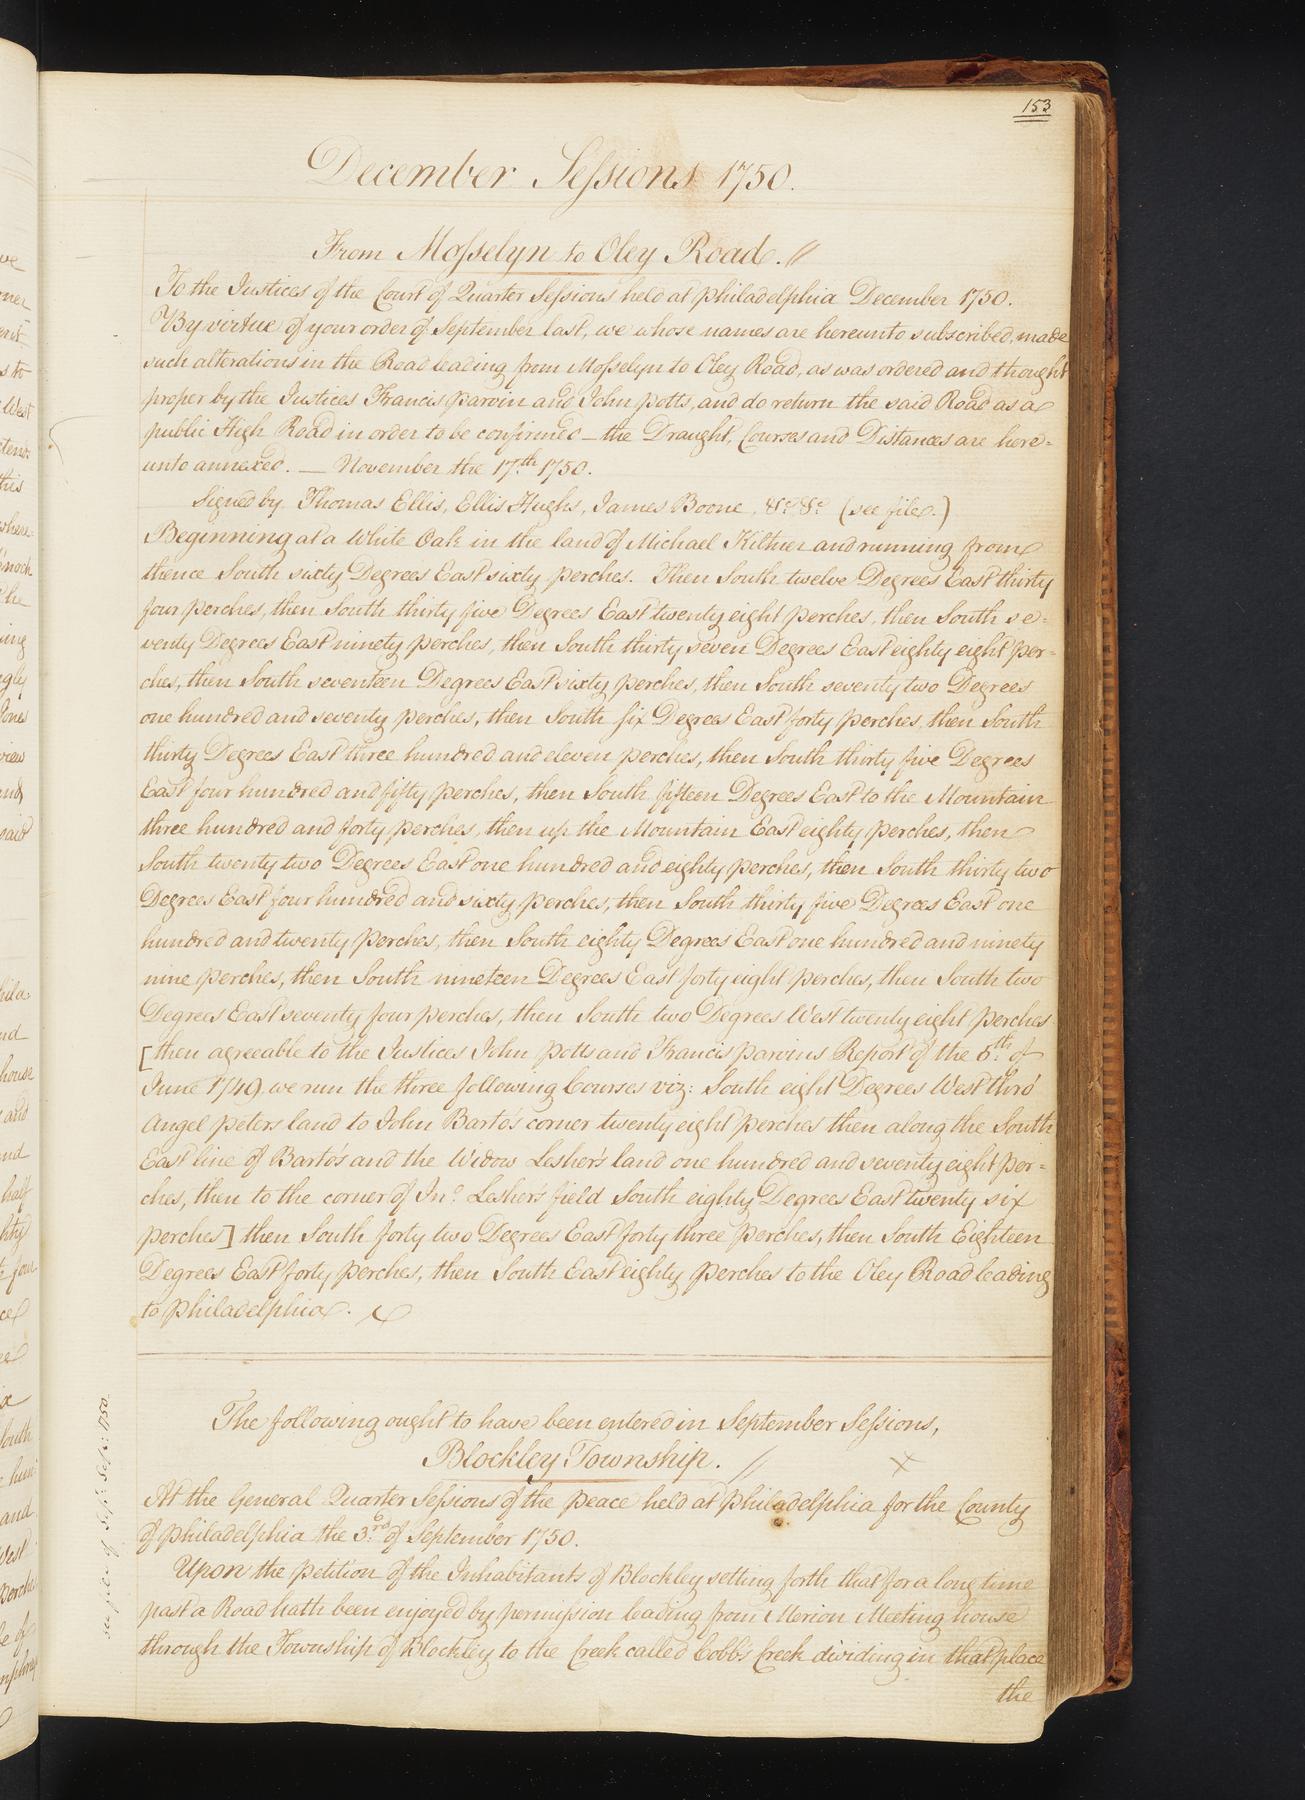 153
December Sessions 1750.
From Mosselyn to Oley Road. //
To the Justices of the Court of Quarter Sessions held at Philadelphia December 1750.
By virtue of your order of September last, we whose names are hereunto subscribed, made
such alterations in the Road leading from Mosselyn to Oley Road, as was ordered and thought
proper by the Justices Francis Parvin and John Potts, and do return the said Road as a
public High Road in order to be confirmed – the Draught, Courses and Distances are here=
unto annexed. — November the 17.th 1750.
Signed by, Thomas Ellis, Ellis Hughs, James Boone, &c &c (see file.)
Beginning at a White Oak in the land of Michael Kilhner and running from
thence South sixty Degrees East sixty perches. Then South twelve Degrees East thirty
four perches, then South thirty five Degrees East twenty eight perches, then South se=
venty Degrees East ninety perches, then South thirty seven Degrees East eighty eight per=
ches, then South seventeen Degrees East sixty perches, then South seventy two Degrees
one hundred and seventy perches, then South six Degrees East forty perches, then South
thirty Degrees East three hundred and eleven perches, then South thirty five Degrees
East four hundred and fifty perches, then South fifteen Degrees East to the Mountain
three hundred and forty perches, then up the Mountain East eighty perches, then
South twenty two Degrees East one hundred and eighty perches, then South thirty two
Degrees East four hundred and sixty perches, then South thirty five Degrees East one
hundred and twenty perches, then South eighty Degrees East one hundred and ninety
nine perches, then South nineteen Degrees East forty eight perches, then South two
Degrees East seventy four perches, then South two Degrees West twenty eight perches
[then agreeable to the Justices John Potts and Francis Parvins Report of the 5.th of
June 1749 we run the three following Courses viz: South eight Degrees West thro'
Angel Peters land to John Barto's corner twenty eight perches then along the South
East line of Barto's and the Widow Lesher's land one hundred and seventy eight per=
ches, then to the corner of Jno. Lesher's field South eighty Degrees East twenty six
perches] then South forty two Degrees East forty three perches, then South Eighteen
Degrees East forty perches, then South East eighty perches to the Oley Road leading
to Philadelphia.
The following ought to have been entered in September Sessions,
Blockley Township. // X
At the General Quarter Sessions of the peace held at Philadelphia for the County
of Philadelphia the 3.rd of September 1750.
Upon the petition of the Inhabitants of Blockley setting forth that for a long time
past a Road hath been enjoyed by permission leading from Merion Meeting house
through the Township of Blockley to the Creek called Cobb's Creek dividing in that place
the
see file of Sepr. Sess: 1750